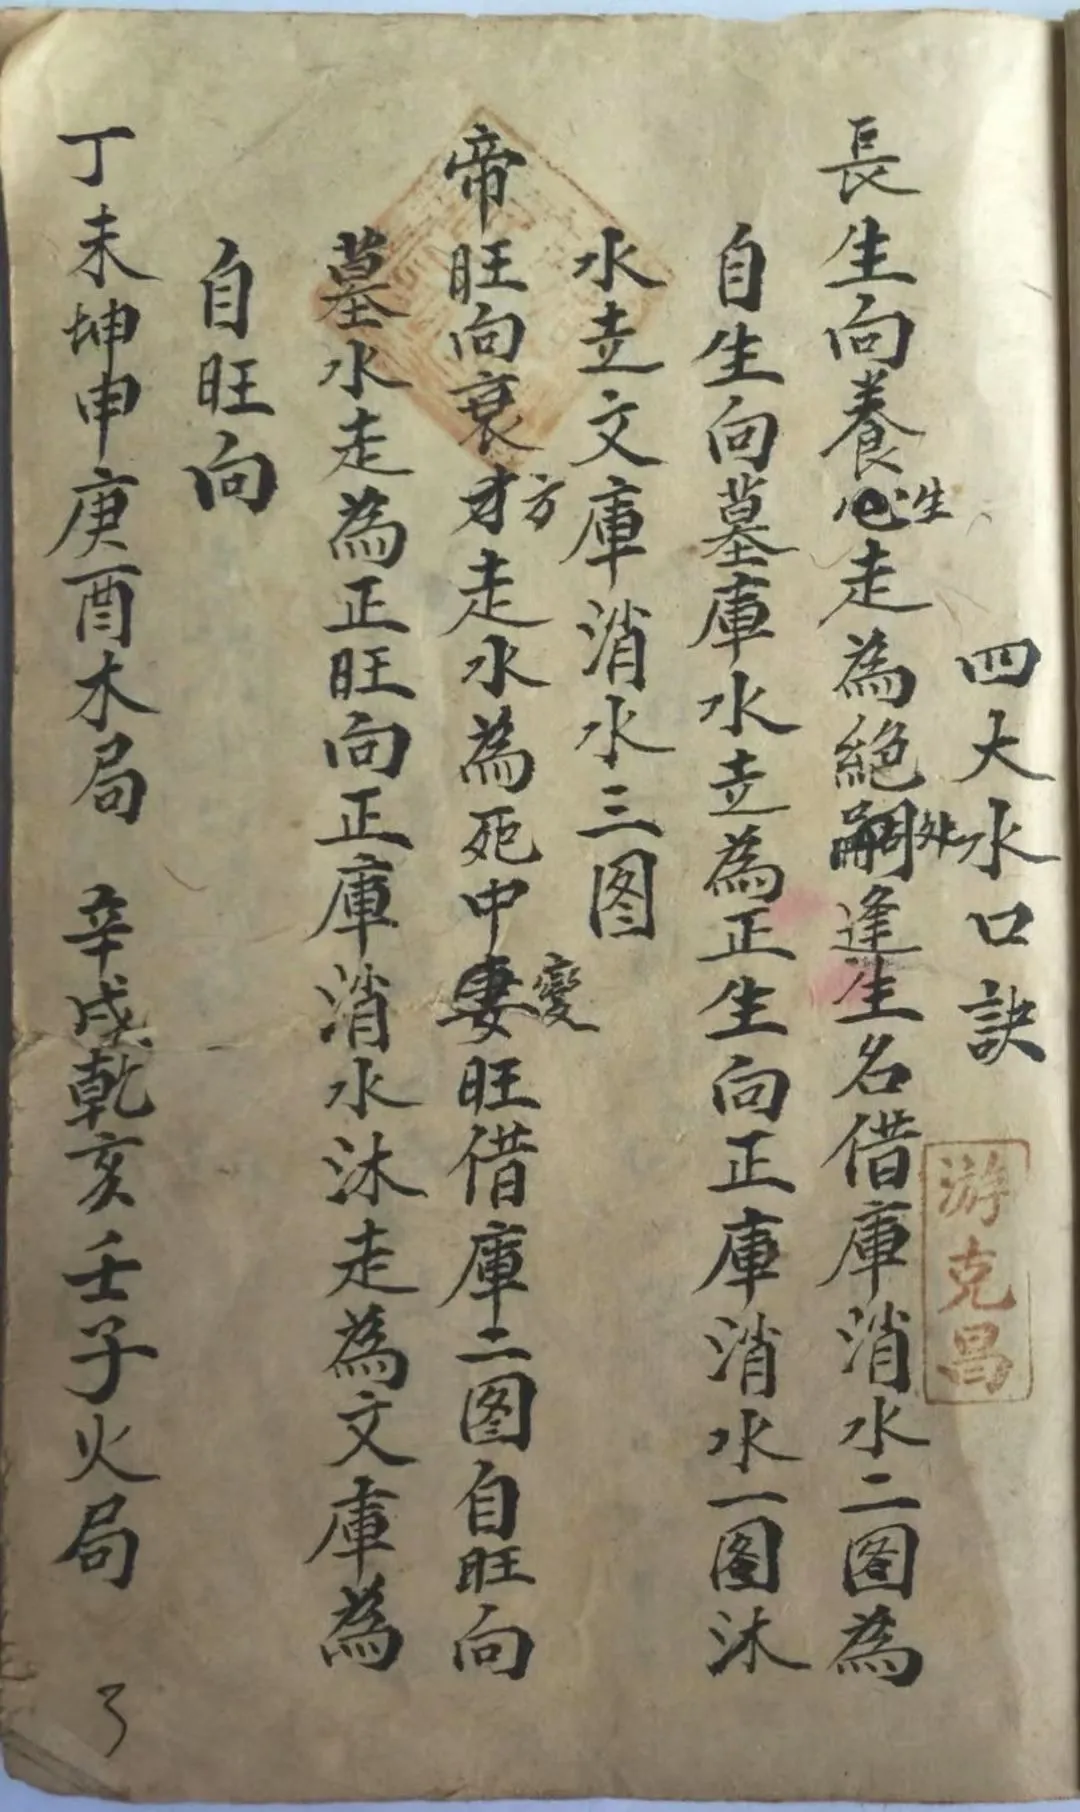 四大水口訣
游克昌
長生向養心生走為絕嗣处逢生名借庫消水二图為
自生向墓庫水立為正生向正庫消水一图沐
水立文庫消水三图
帝旺向衰才方走水為死中妻變旺借庫二图自旺向
墓水走為正旺向正庫消水沐走為文庫為
自旺向
丁未坤申庚酉木局 辛戌乾亥壬子火局